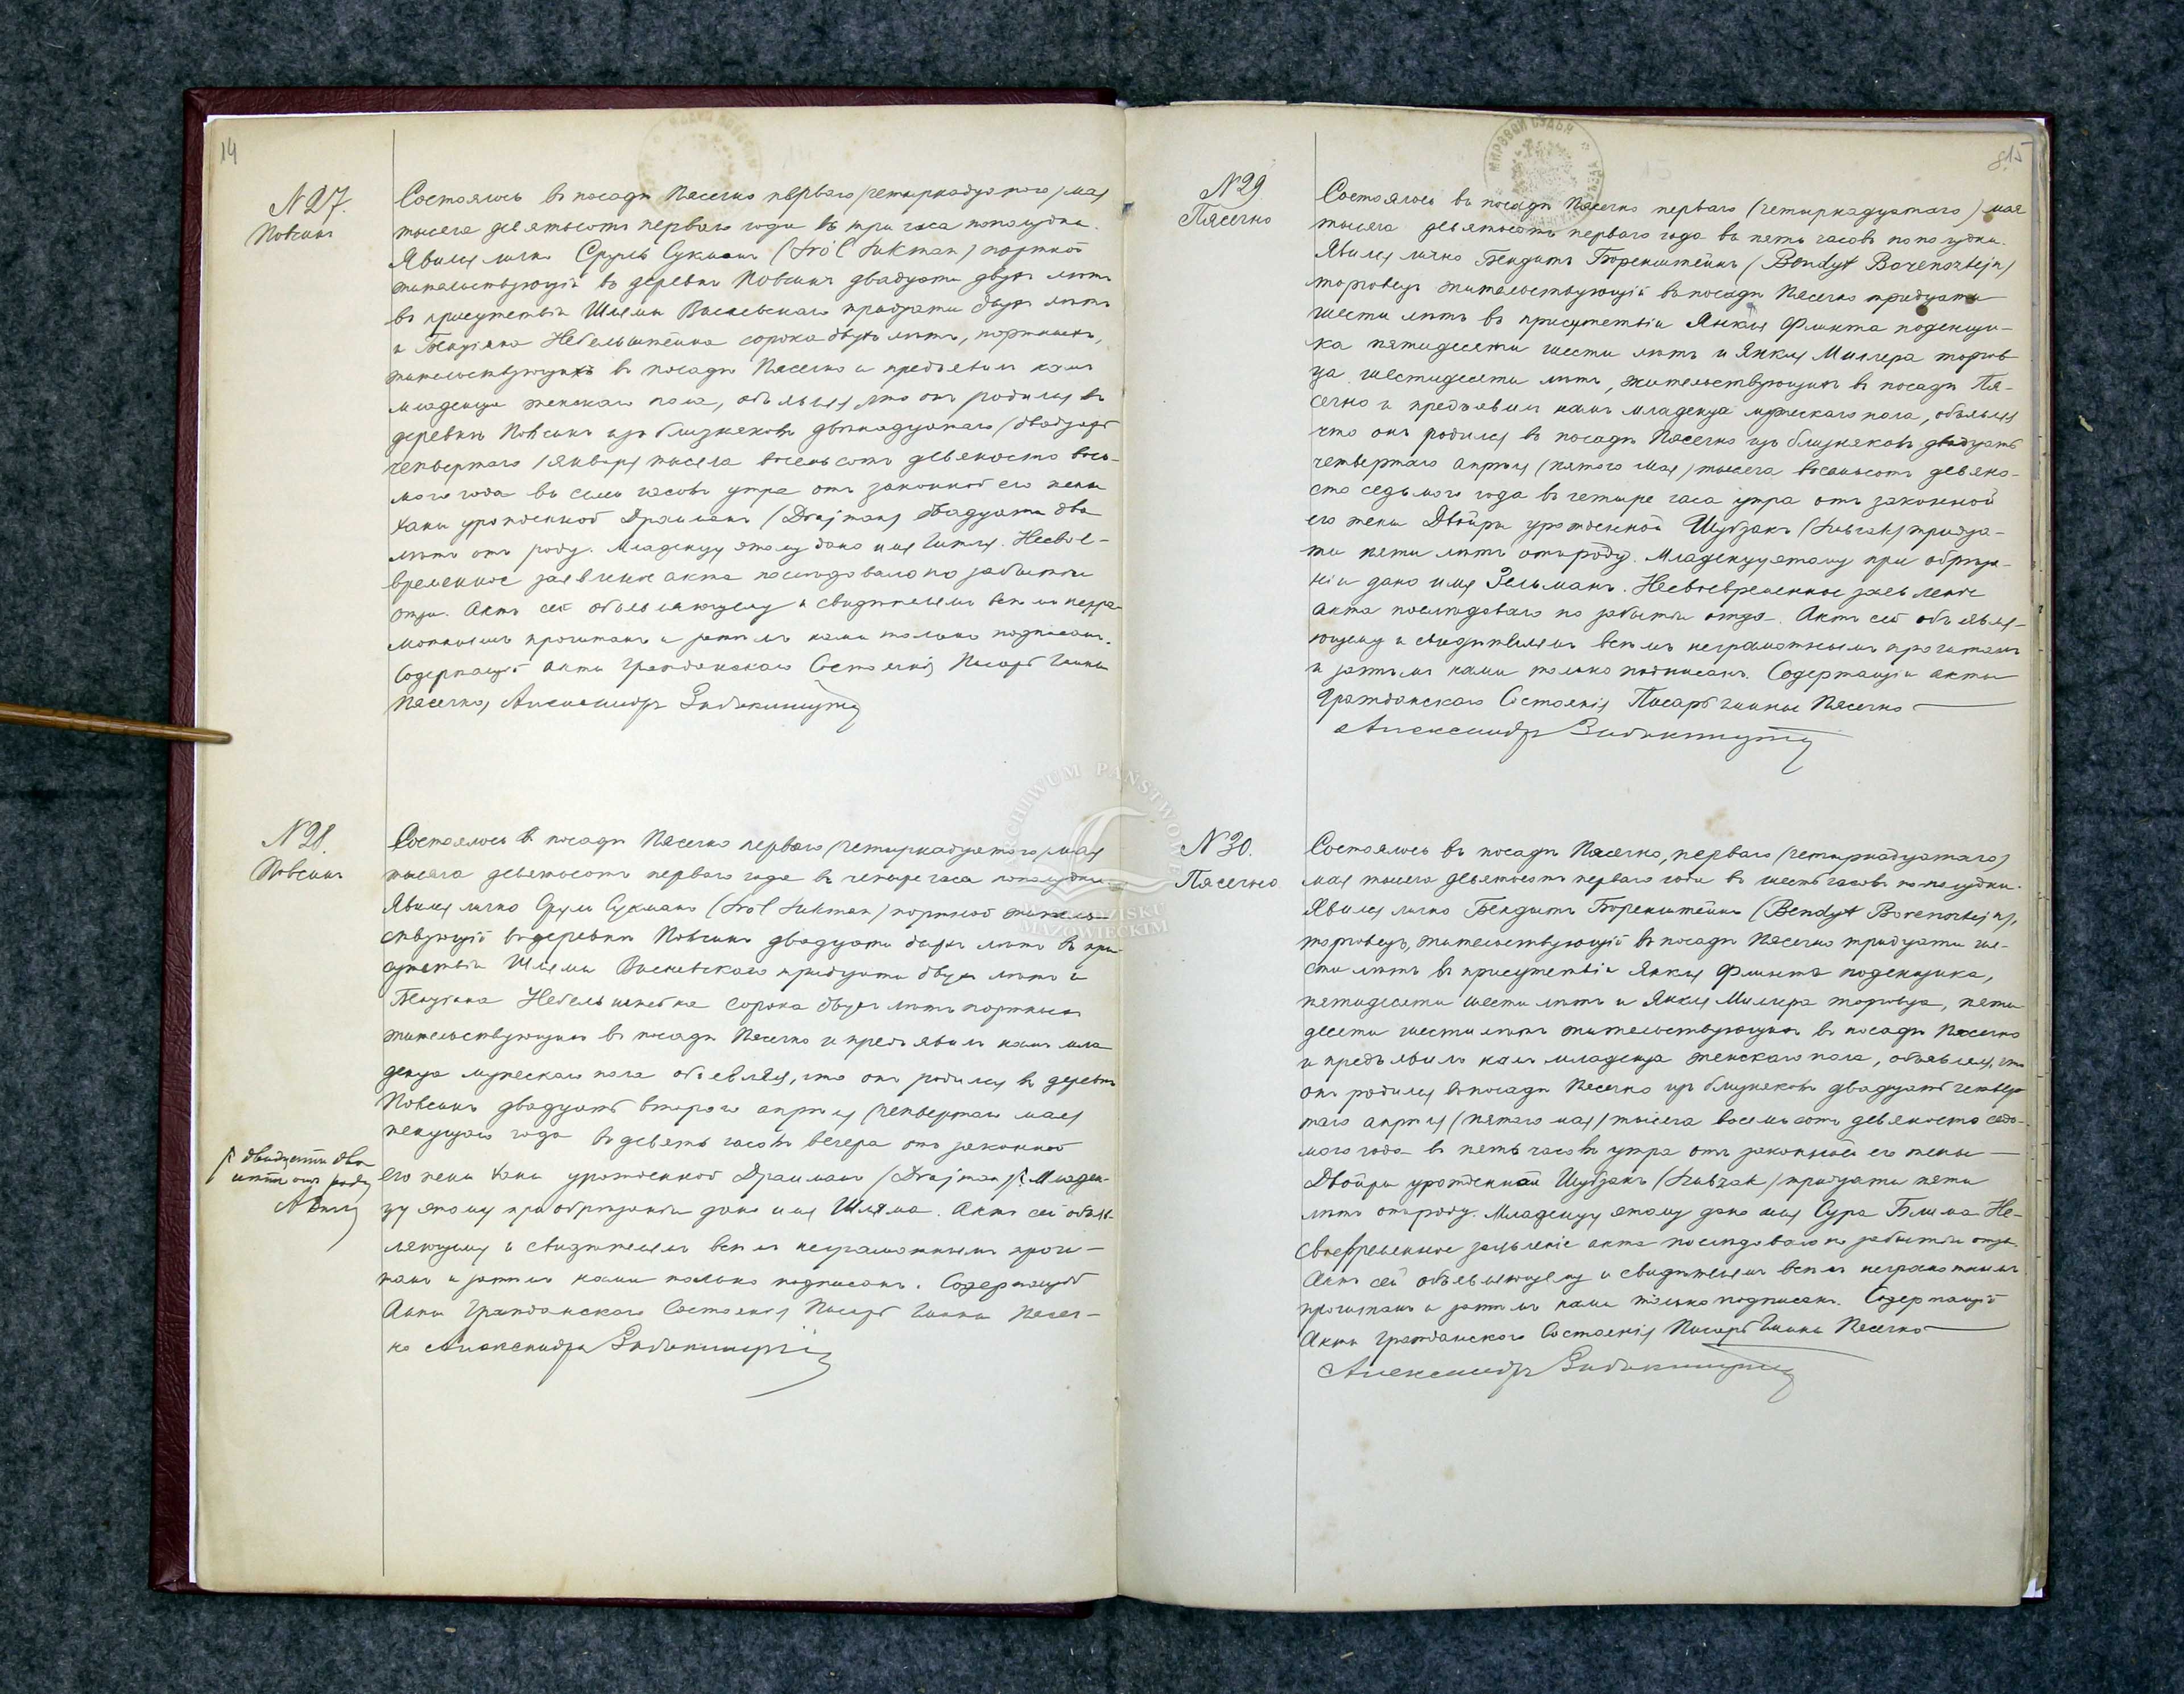 14
N 27.
Повсинъ
Состоялось въ посадѣ Пясечно перваго (четырнадцатаго) мая
тысяча девятьсотъ перваго года въ три часа пополудни.
Явился лично Сруль Сукманъ (Sról Sukman) портной
жительствующій въ деревнѣ Повсинъ двадцати двухъ лѣтъ
въ присутствіи Шлемы тридцати двухъ лѣтъ
и Небельштейна сорока двухъ лѣтъ, портныхъ,
жительствующихъ въ посадѣ Пясечно и предъявилъ намъ
младенца женскаго пола, объявляя что онъ родился въ
деревнѣ Повсинъ изъ близнековъ двѣнадцатаго (двадцать
четвертаго) января тысяча восемьсотъ девяносто вось-
маго года въ семь часовъ утра отъ законной его жены
Ханы урожденной Драйманъ (Drajman) двадцати два
лѣтъ отъ роду. Младенцу этому дано имя Гитля. Несвое-
временное заявленіе акта послѣдовало по забытіи
отца. Актъ сей объявляющему и свидѣтелямъ всѣмъ негра-
мотнымъ прочитанъ и затѣмъ нами только подписанъ.
Содержащій акты Гражданскаго Состоянія Писарь Гмины
Пясечно, Александръ
N 28.
Повсинъ
Состоялось въ посадѣ Пясечно перваго (четырнадцатаго) мая
тысяча девятьсотъ перваго года въ четыре часа пополудни.
Явился лично Сруль Сукманъ (Srol Sukman) портной житель-
ствующій въ деревнѣ Повсинъ двадцати двухъ лѣтъ въ при-
сутствіи Шлемы тридцати двухъ лѣтъ и
Небельштейна сорока двухъ лѣтъ портныхъ
жительствующихъ въ посадѣ Пясечно и предъявилъ намъ мла
денца мужескаго пола объявляя, что онъ родился въ деревнѣ
Повсинъ двадцать втораго апрѣля (четвертаго мая)
текущаго года въ девять часовъ вечера отъ законной
его жены Ханы урожденной Драйманъ (Drajman) Младен-
двадцати два
лѣтъ отъ роду
цу этому при обрѣзаніи дано имя Шляма. Актъ сей объяв-
ляющему и свидѣтелямъ всѣмъ неграмотнымъ прочи-
танъ и затѣмъ нами только подписанъ. Содержащій
Акты Гражданскаго Состоянія Писарь Гмины Пясеч-
но Александръ
815
МИРОВОЙ СУДЬЯ
N 29.
Пясечно
Состоялось въ посадѣ Пясечно перваго (четырнадцатаго) мая
тысяча девятьсотъ перваго года въ пять часовъ пополудни.
Явился лично Бендытъ Боренштейнъ (Bendyt Borensztejn)
торговецъ жительствующій въ посадѣ Пясечно тридцати
шести лѣтъ въ присутствіи Янкля Флинта поденщи-
ка пятидесяти шести лѣтъ и Янкля Миллера торгов
ца шестидесяти лѣтъ, жительствующихъ въ посадѣ Пя-
сечно и предъявилъ намъ младенца мужескаго пола, объявляя
что онъ родился въ посадѣ Пясечно изъ близняковъ двадцать
четвертаго апрѣля (пятаго мая) тысяча восемьсотъ девяно-
сто седьмого года въ четыре часа утра отъ законной
его жены Двойры урожденной Шубзакъ (Szubzak) тридца-
ти пяти лѣтъ отъ роду. Младенцу этому при обрѣза-
ніи дано имя Зельманъ. Несвоевременное заявленіе
акта послѣдовало по забытіи отца. Актъ сей объявля-
ющему и свидѣтелямъ всѣмъ неграмотнымъ прочитанъ
и затѣмъ нами только подписанъ. Содержащій акты
Гражданскаго Состоянія Писарь Гмины Пясечно
Александръ
N 30.
Пясечно
Состоялось въ посадѣ Пясечно, перваго (четырнадцатаго)
мая тысяча девятьсотъ перваго года въ шесть часовъ пополудни.
Явился лично Бендытъ Боренштейнъ (Bendyt Borensztejn),
торговецъ, жительствующій въ посадѣ Пясечно тридцати ше-
сти лѣтъ въ присутствіи Янкля Флинта поденщика,
пятидесяти шести лѣтъ и Янкля Миллера торговца, пяти
десяти шести лѣтъ жительствующихъ въ посадѣ Пясечно
и предъявилъ намъ младенца женскаго пола, объявляя, что
онъ родился въ посадѣ Пясечно изъ близняковъ двадцать четвер
таго апрѣля (пятаго мая) тысяча восемьсотъ девяносто седь-
мого года въ пять часовъ утра отъ законной его жены
Двойры урожденной Шубзакъ (Szubzak) тридцати пяти
лѣтъ отъ роду. Младенцу этому дано имя Сура Блима Не-
своевременное заявленіе акта послѣдовало по забытіи отца.
Актъ сей объявляющему и свидѣтелямъ всѣмъ неграмотнымъ
прочитанъ и затѣмъ нами только подписанъ. Содержащій
Акты Гражданскаго Состоянія Писарь Гмины Пясечно
Александръ
ARCHIWUM PAŃSTWOWE
W GRODZISKU
MAZOWIECKIM